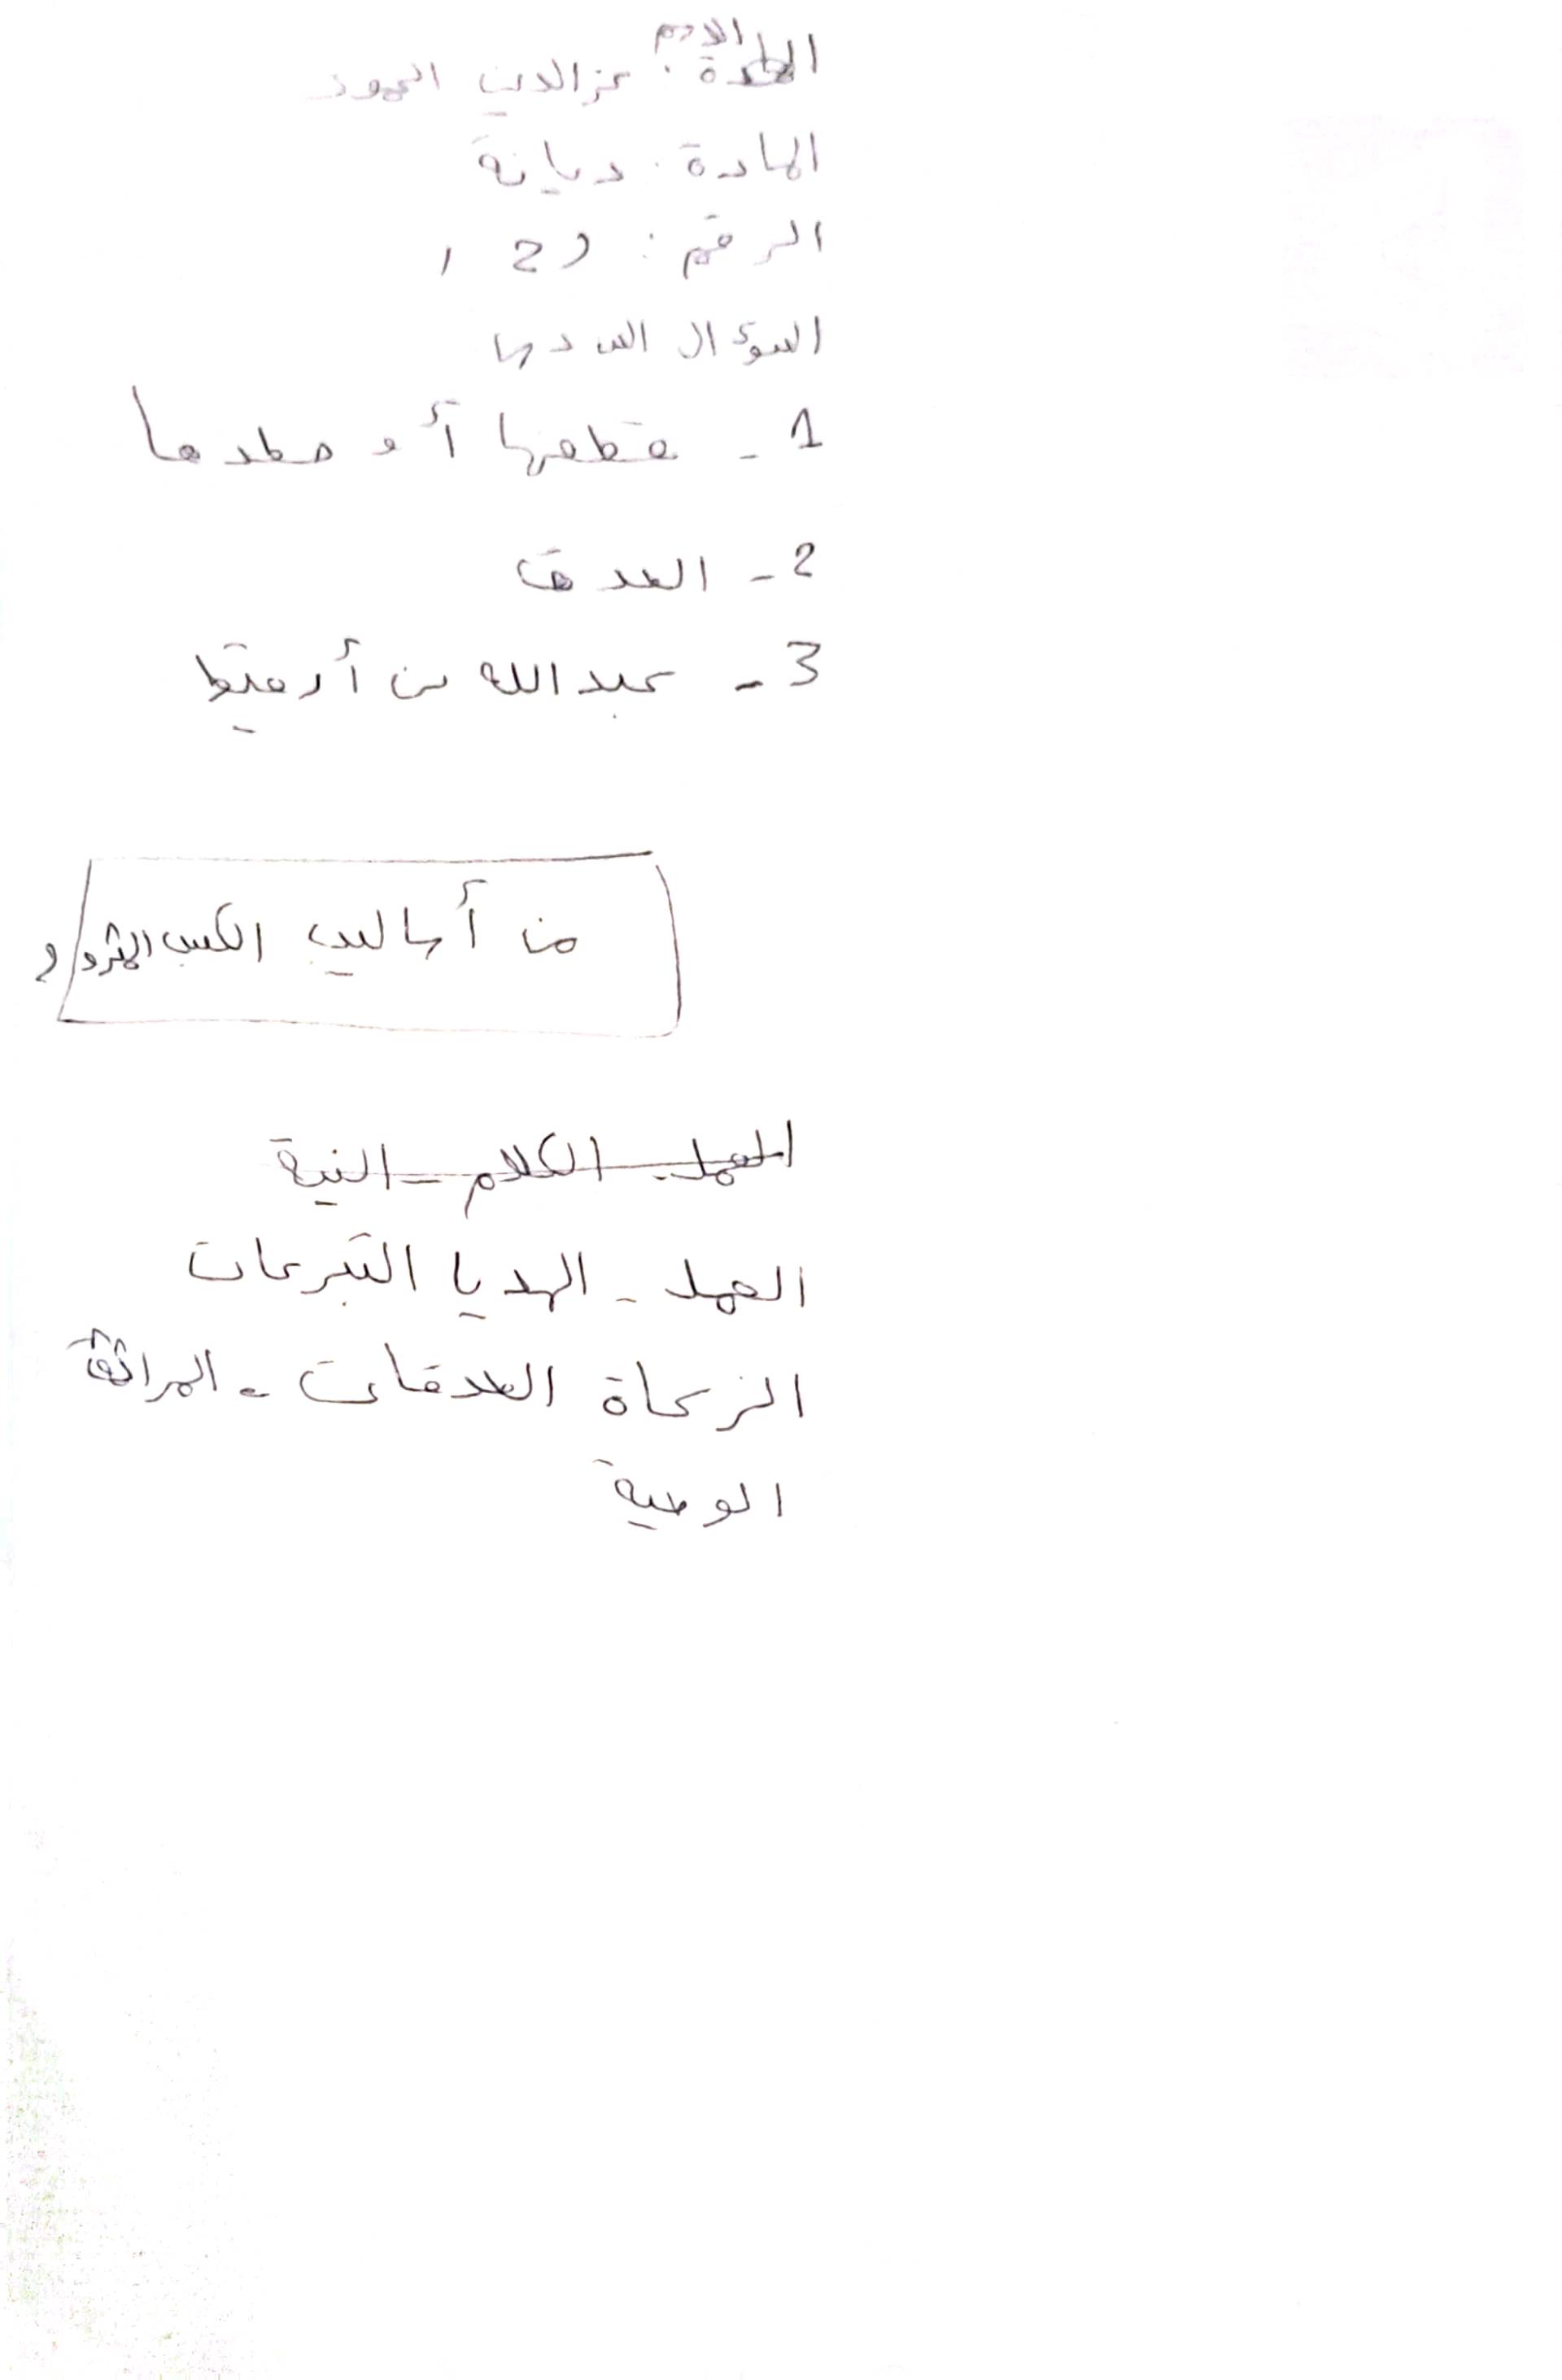 الاسم
المادة: عز الدين الحمود
المادة: ديانة
الرقم: 29 1
السؤال السدسا
1- قطعها أو حصدها
2- الصدق
3- عبد الله بن أريقط
من أساليب الكسب المشروع
العمل - الكلام - النية
العمل - الهديا التبرعات
الزكاة الصدقات - المراثة
الوصية